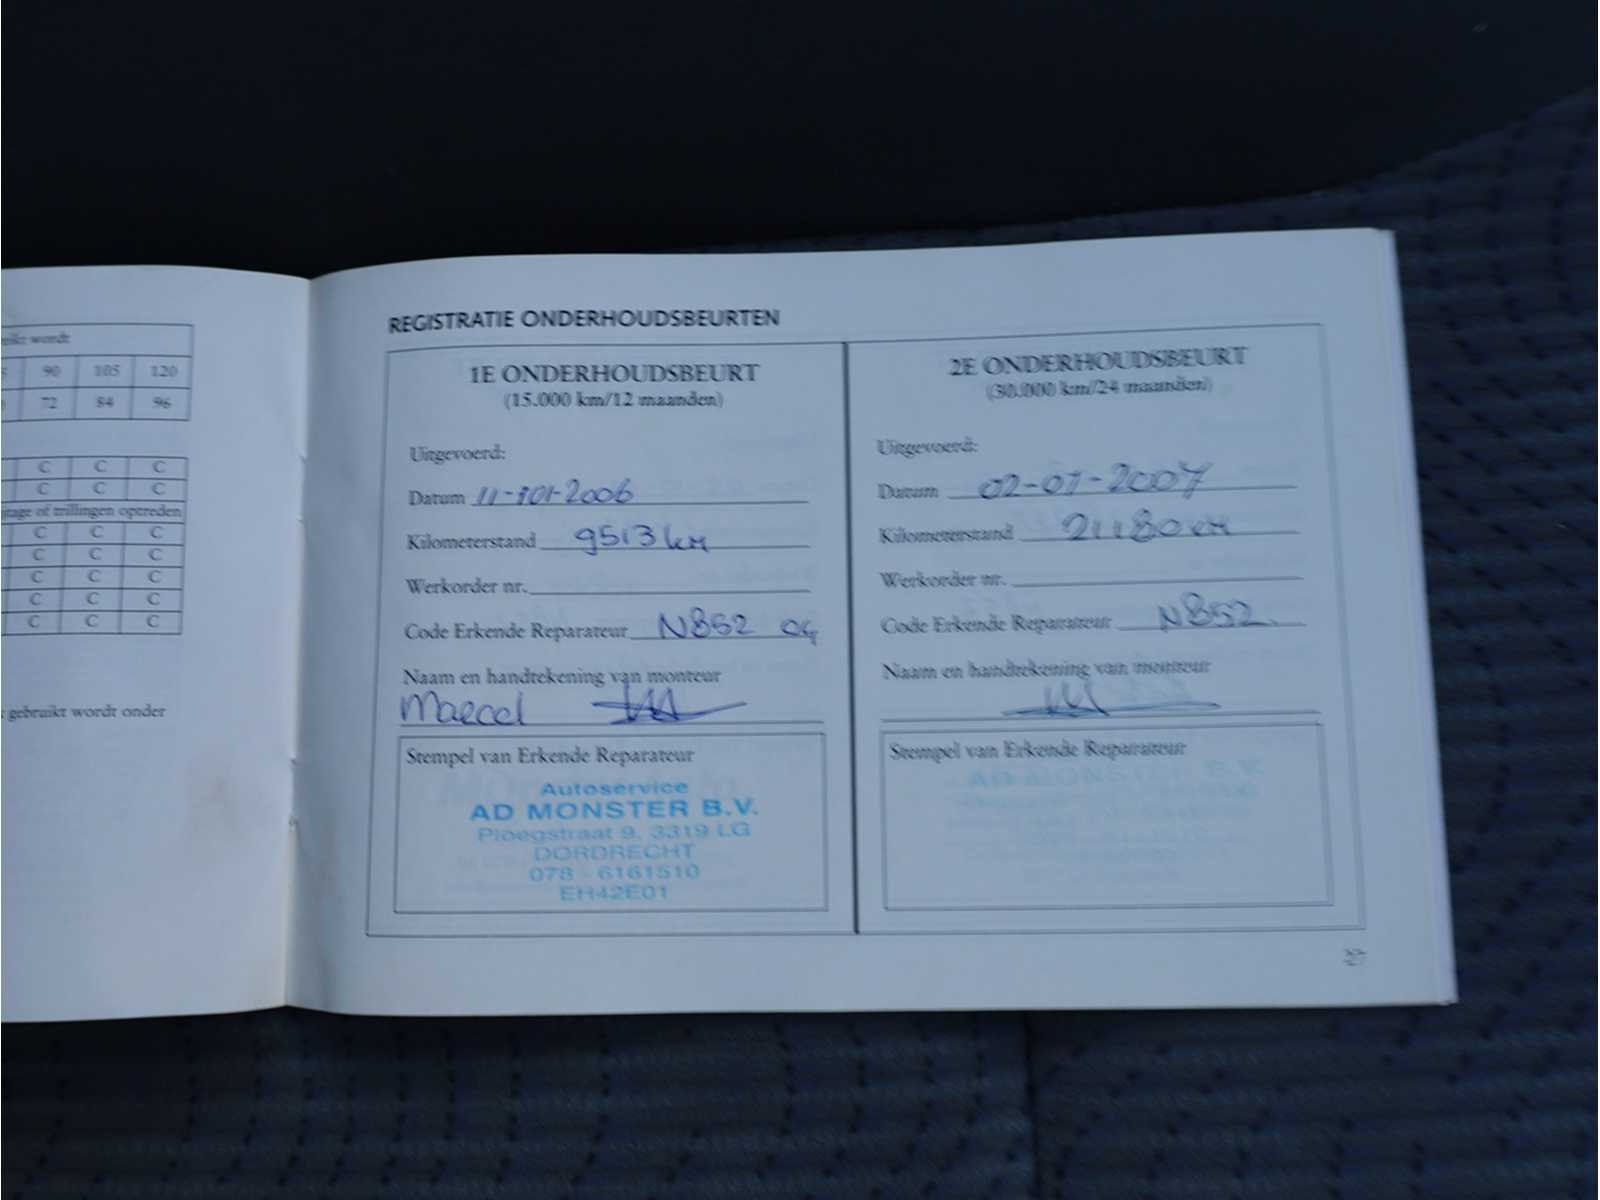 wordt
90 105 120
72 84 96
C C C
C C C
of trillingen optreden
C C C
C C C
C C C
C C C
C C C
gebruikt wordt onder
REGISTRATIE ONDERHOUDSBEURTEN
1E ONDERHOUDSBEURT
(15.000 km/12 maanden)
Uitgevoerd:
Datum 11-101-2006
Kilometerstand 9513 km
Werkorder nr.
Code Erkende Reparateur N852 04
Naam en handtekening van monteur
Marcel
Stempel van Erkende Reparateur
Autoservice
AD MONSTER B.V.
Ploegstraat 9, 3319 LG
DORDRECHT
078 - 6161510
EH42E01
2E ONDERHOUDSBEURT
(30.000 km/24 maanden)
Uitgevoerd:
Datum 02-01-2007
Kilometerstand 21180 km
Werkorder nr.
Code Erkende Reparateur N852.
Naam en handtekening van monteur
Stempel van Erkende Reparateur
AD MONSTER B.V.
27